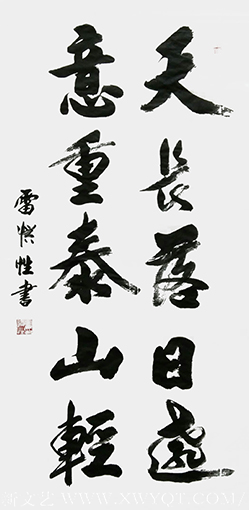 天長落日遠
意重泰山輕
雷燃性書
WWW.XWYQT.COM